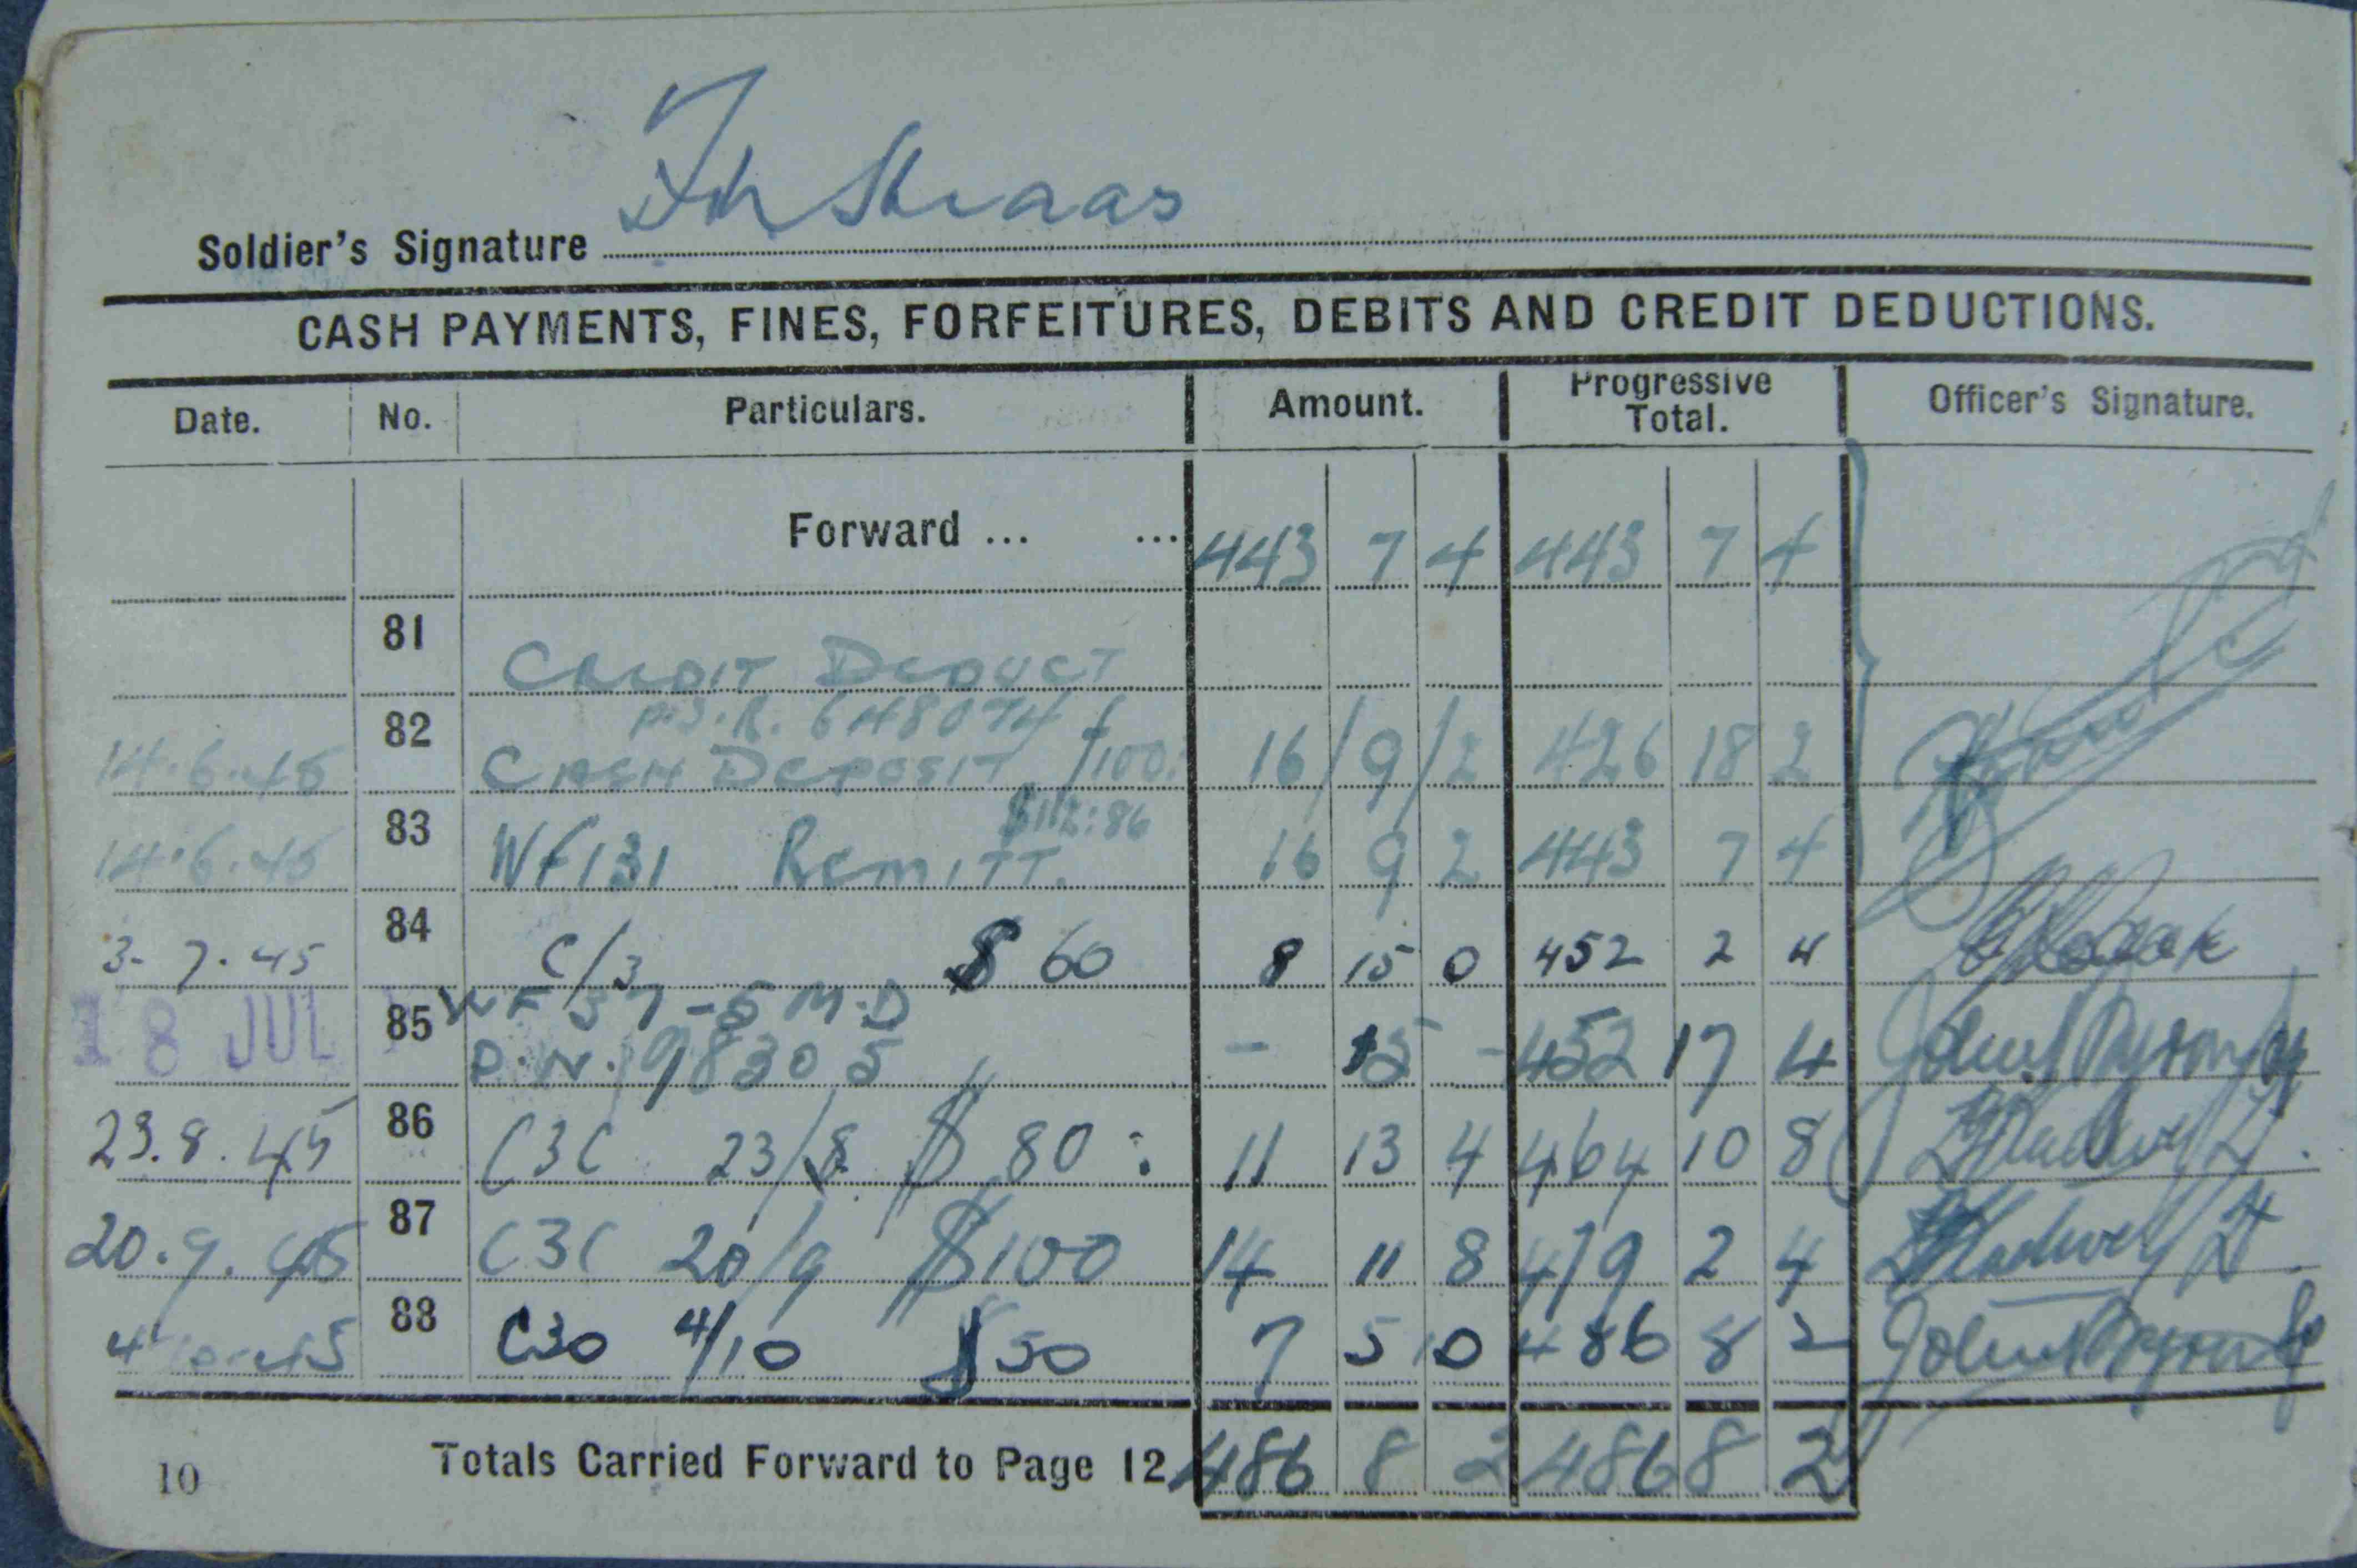 Soldier's Signature
CASH PAYMENTS, FINES, FORFEITURES, DEBITS AND CREDIT DEDUCTIONS.
Date. No. Particulars. Amount. Progressive Total. Officer's Signature.
Forward ... ... 443 7 4 443 7 4
81 CREDIT DEDUCT
P.S.R. 648074
14.6.45 82 CASH DEPOSIT £100: 16/9/2 426 18 2
$112:86
14.6.45 83 WF131 REMITT. 16 9 2 443 7 4
3-7.45 84 C/3 $60 8 15 0 452 2 4
WF 37-5 M.D
18 JUL 85 D.N. 98305 - 15 - 452 17 4
23.8.45 86 C3C 23/8 $80: 11 13 4 464 10 8
20.9.45 87 C3C 20/9 $100 14 11 8 479 2 4
88 C30 4/10 $50 7 5 10 486 8 2
10 Totals Carried Forward to Page 12 486 8 2 486 8 2